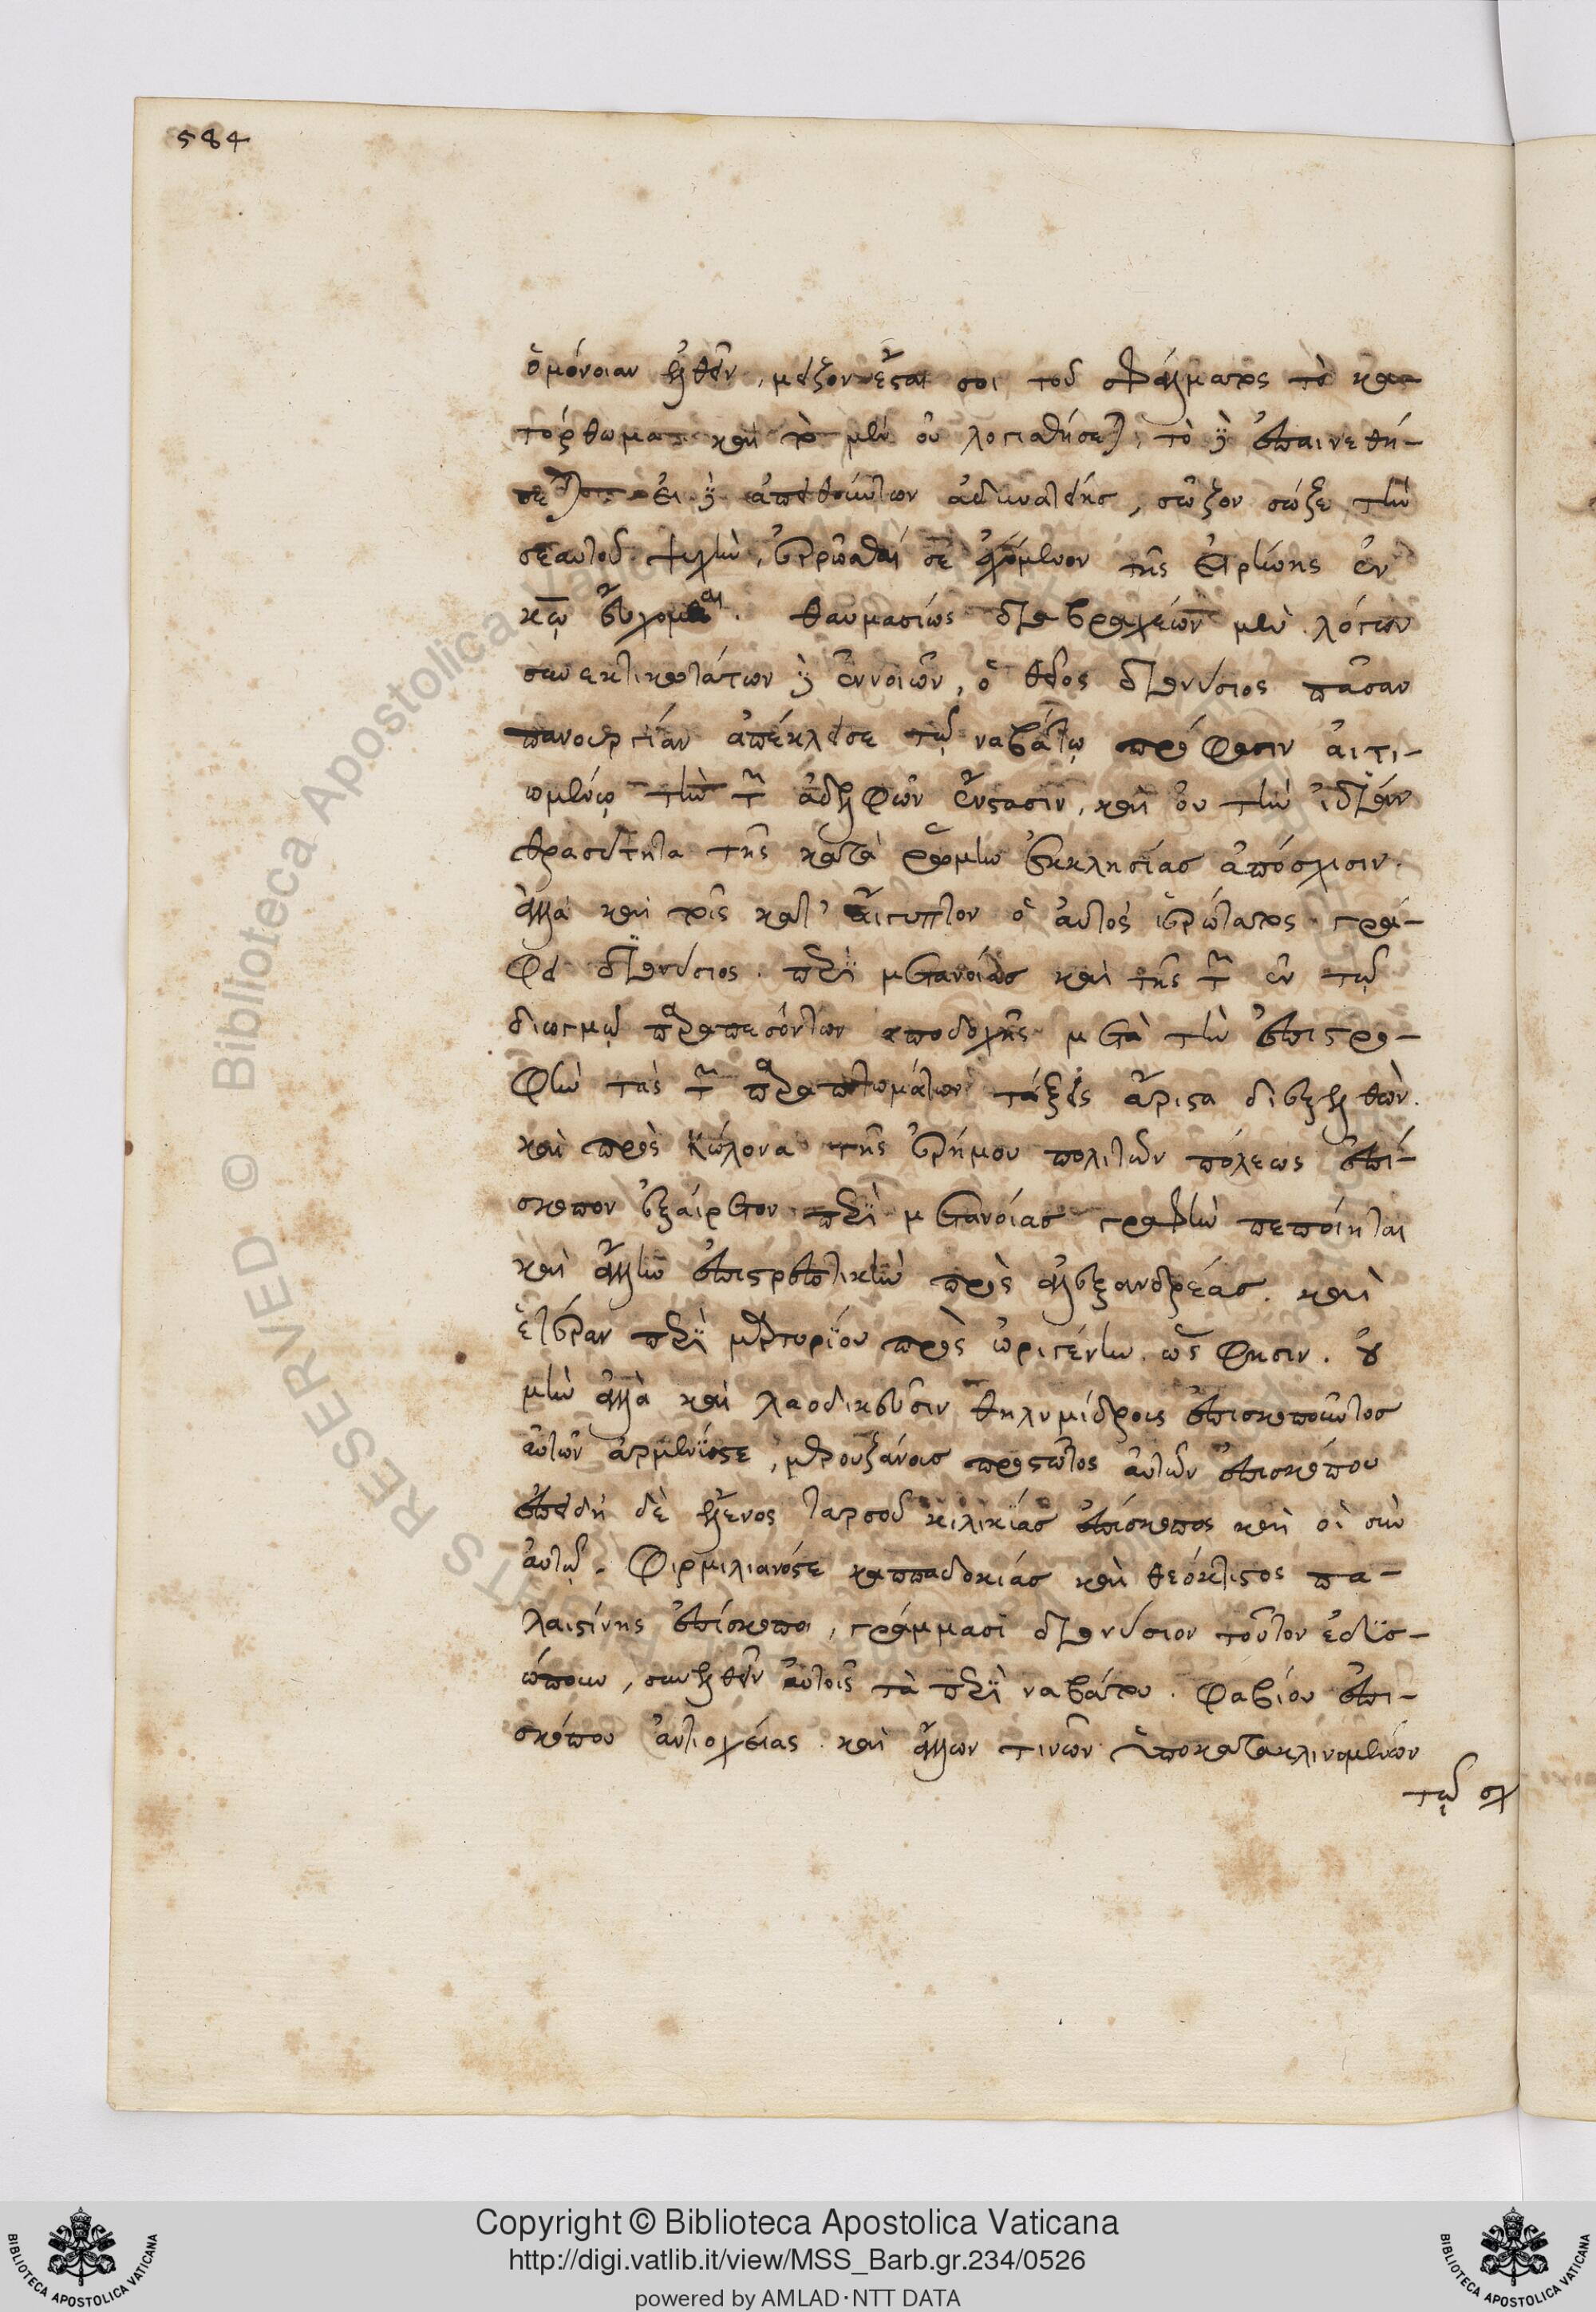 584
ὁμόνοιαν ἐλθεῖν, μεῖζον ἔσται σοι τοῦ σφάλματος τὸ κα-
τόρθωμα. καὶ τὸ μὲν οὐ λογισθήσεται, τὸ δὲ ἐπαινεθή-
σεται. εἰ δὲ ἀπειθούντων ἀδυνατοίης, σώζων σῶζε τὴν
σεαυτοῦ ψυχὴν, ἐρρῶσθαί σε ἐχόμενον τῆς εἰρήνης ἐν
κῳ εὔχομαι. θαυμασίως διὰ βραχειῶν μὲν λόγων
συνεκτικωτάτων δὲ ἐννοιῶν, ὁ θεῖος διονύσιος πᾶσαν
πανουργίαν ἀπέκλεισε τῷ ναβάτῳ πρόφασιν αἰτι-
ωμένῳ τὴν τῶν ἀδελφῶν ἔνστασιν, καὶ οὐ τὴν ἰδίαν
θρασύτητα τῆς κατὰ ῥώμην ἐκκλησίας ἀπόσχισιν.
ἀλλὰ καὶ τοῖς κατ' αἴγυπτον ὁ αὐτὸς ἱερώτατος γρά-
φει διονύσιος. περὶ μετανοίας καὶ τῆς τῶν ἐν τῷ
διωγμῷ παραπεσόντων ἀποδοχῆς μετὰ τὴν ἐπιστρο-
φὴν τὰς τῶν παραπτωμάτων τάξεις ἄριστα διεξελθών.
καὶ πρὸς κώλονα τῆς ἐρήμου πολιτῶν πόλεως ἐπί-
σκοπον ἐξαίρετον περὶ μετανοίας γραφὴν πεποίηται
καὶ ἄλλην ἐπιστρεπτικὴν πρὸς ἀλεξανδρέας. καὶ
ἑτέραν περὶ μαρτυρίου πρὸς ὠριγένην ὥς φησιν. οὐ
μὴν ἀλλὰ καὶ λαοδικεῦσιν θηλυμίδροις ἐπισκοποῦντος
αὐτῶν ἀρμενίοις τε, μερουζάνοις προεστῶτος αὐτῶν ἐπισκόπου
ἐπειδὴ δὲ ἕλενος ταρσοῦ κιλικίας ἐπίσκοπος καὶ οἱ σὺν
αὐτῷ. φιρμιλιανός τε καππαδοκίας καὶ θεόκτιστος πα-
λαιστίνης ἐπίσκοποι, γράμμασι διονύσιον τοῦτον ἐδυσ-
ώπουν, συνελθεῖν αὐτοῖς τὰ περὶ ναβάτου. φαβίου ἐπι-
σκόπου ἀντιοχείας. καὶ ἄλλων τινῶν ὑποκατακλινομένων
τῷ σχ
Copyright © Biblioteca Apostolica Vaticana
http://digi.vatlib.it/view/MSS_Barb.gr.234/0526
powered by AMLAD·NTT DATA